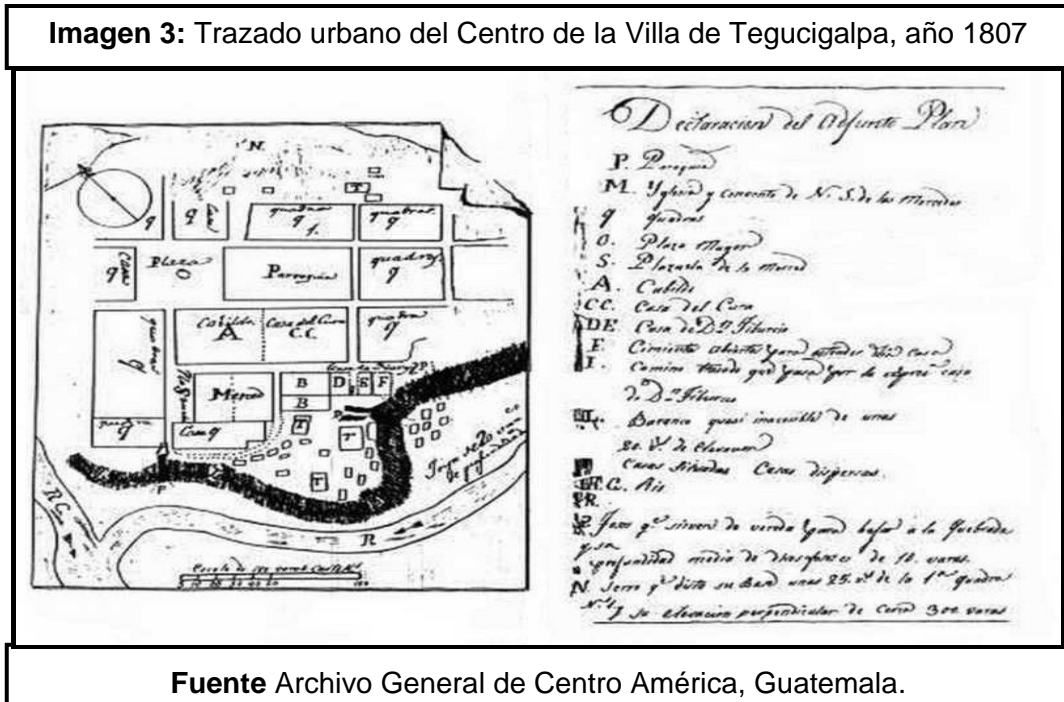 Imagen 3: Trazado urbano del Centro de la Villa de Tegucigalpa, año 1807
N.
T
q
q
Casa
quadras
q
1.
quadras
q
Casa
q
Plaza
O
Parroquia
quadras
q
quadras
q
Cabildo
A
Casa del Cura
C.C.
quadra
q
Merced
B
B
D
E
F
T
T
T
q
Casa q
P
R
R
Escala de 100 varas
Declaracion del Adjunto Plan
P. Parroquia
M. Yglesia y convento de N. S. de las Mercedes
q quadras
O. Plaza Mayor
S. Plazuela de la Merced
A. Cabildo
CC. Casa del Cura
DE. Casa de Dn Tiburcio
F. Cimiento abierto para
I. Camino que pasa por la casa
de Dn Tiburcio
Barranco quasi inaccesible de unas
20. vs. de elevacion
Casas Casas dispersas.
Rio
q.e sirven de vereda para bajar a la Quebrada
profundidad media de de 10. varas.
N. Serro q.e dista su Base unas 25. vs. de la 1.a quadra
y su elevacion perpendicular de Cerca 300 varas
Fuente Archivo General de Centro América, Guatemala.